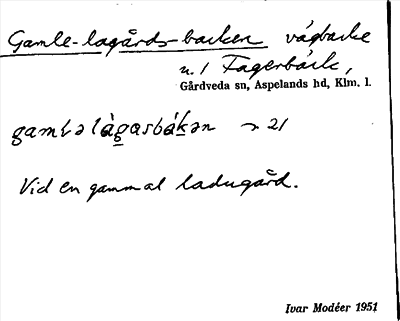 Gamle-lagårds-backen vägbacke
u. 1 Fagerbäck,
Gårdveda sn, Aspelands hd, Klm. l.
21
Vid en gammal ladugård.
Ivar Modéer 1951